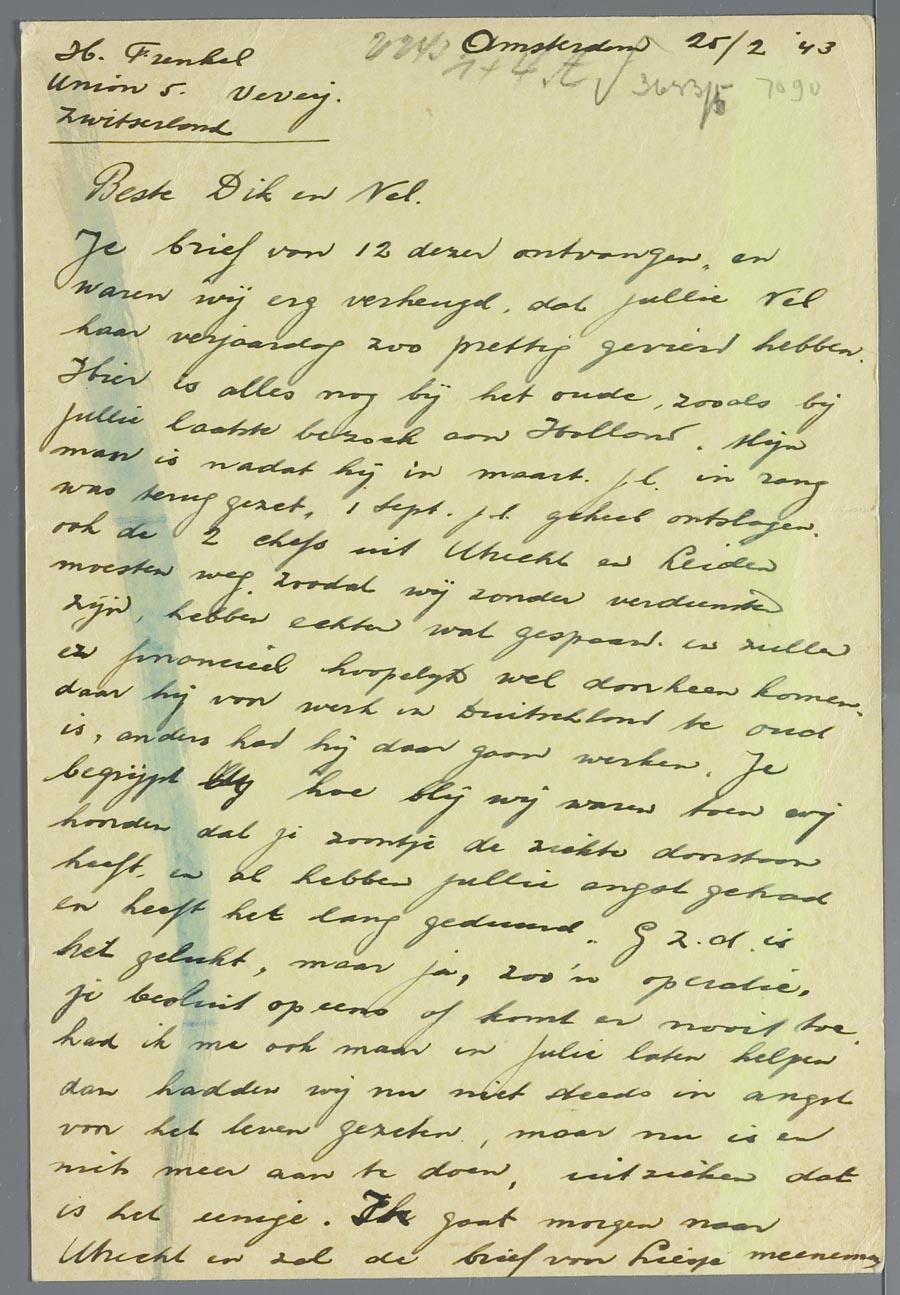 H. Frenkel
Amsterdam 25/2 '43
Union 5. Vevey.
Zwitserland
3683/5 7090
Beste Dik en Nel.
Je brief van 12 dezer ontvangen, en
waren wij erg verheugd, dat jullie Nel
haar verjaardag zoo prettig gevierd hebben.
Hier is alles nog bij het oude, zooals bij
jullie laatste bezoek aan Holland. Mijn
man is nadat hij in maart. j.l. in rang
was terug gezet, 1 Sept. j.l. geheel ontslagen.
ook de 2 chefs uit Utrecht en Leiden
moesten weg, zoodat wij zonder verdienste
zijn, hebben echter wat gespaard. en zullen
er financieel hoopelijk wel doorheen komen.
daar hij voor werk in Duitschland te oud
is, anders had hij daar gaan werken. Je
begrijpt hoe blij wij waren toen wij
hoorden dat je zoontje de ziekte doorstaan
heeft. en al hebben jullie angst gehad
en heeft het lang geduurd. G z. d. is
het gelukt, maar ja, zoo'n operatie,
je besluit opeens of komt er nooit toe.
had ik me ook maar in Julie laten helpen
dan hadden wij nu niet steeds in angst
voor het leven gezeten, maar nu is er
niets meer aan te doen, uitzieken dat
is het eenige. Ik gaat morgen naar
Utrecht en zal de brief van Liesje meenemen